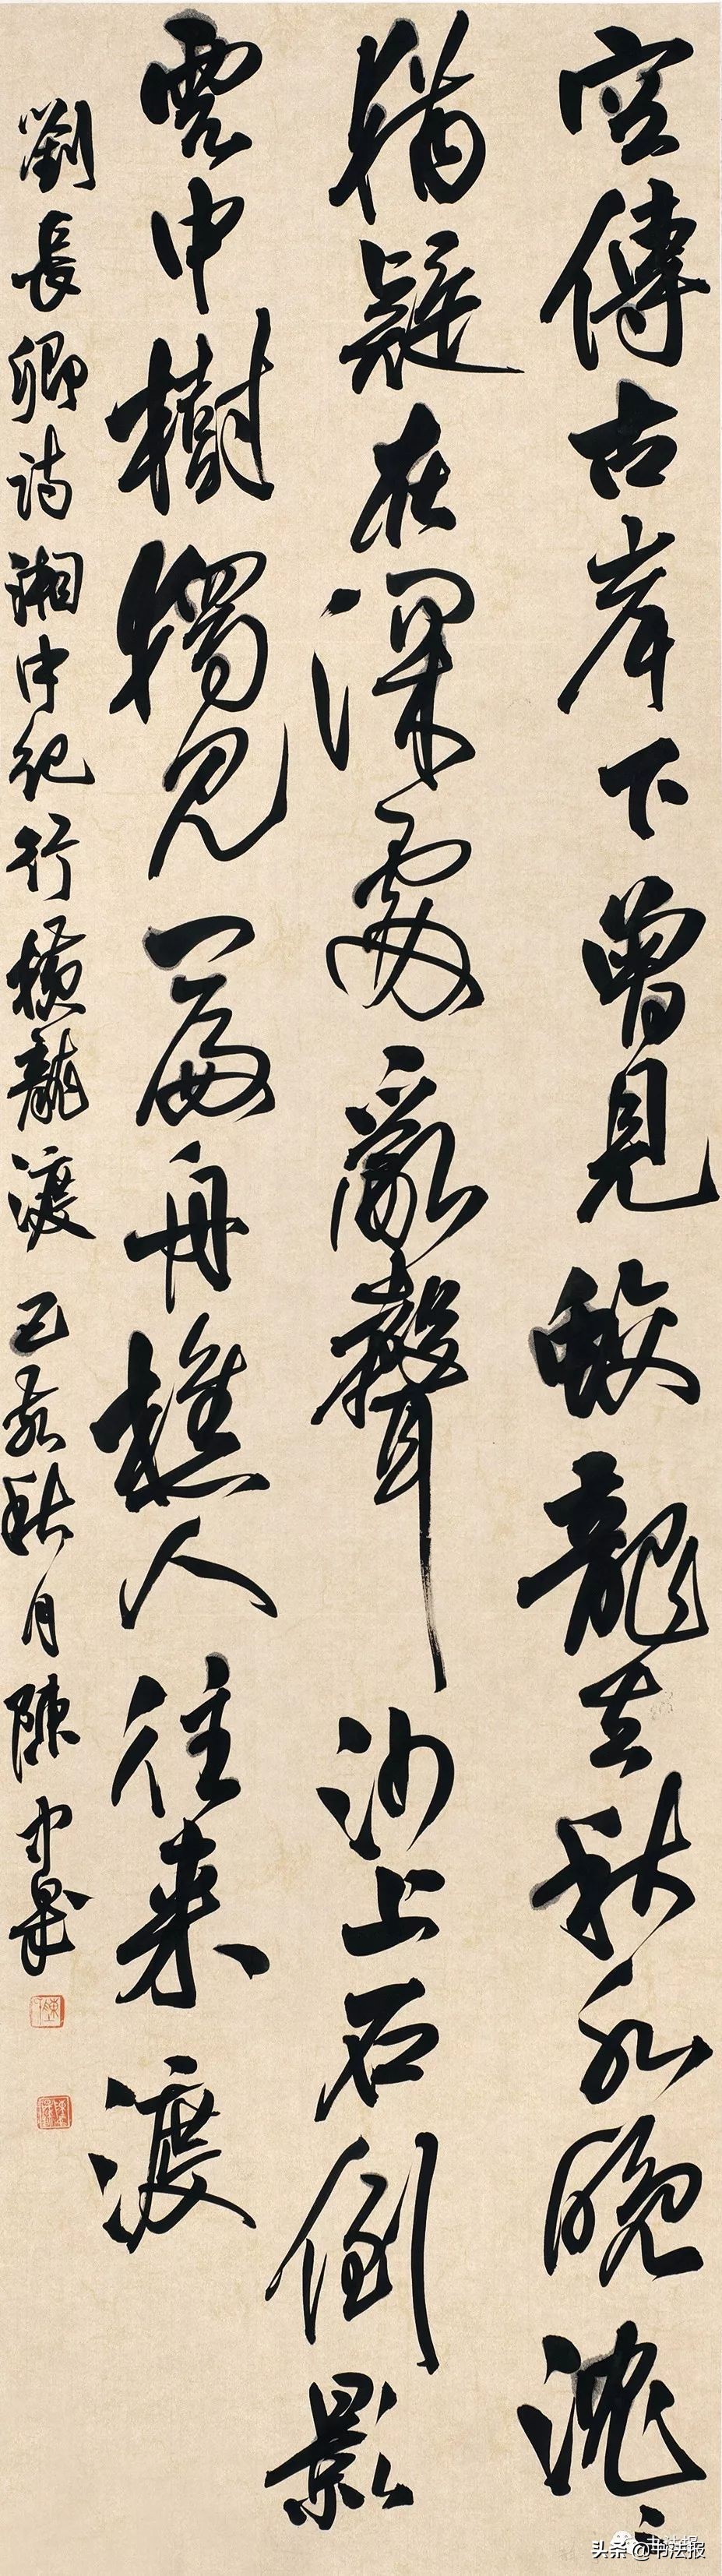 空傳古岸下曾見蛟龍去秋水晚沈〻
猶疑在深處亂聲沙上石倒影
雲中樹獨見一扁舟樵人往来渡
劉長卿詩湘中紀行橫龍渡 己亥秋月陳
头条 @书法报